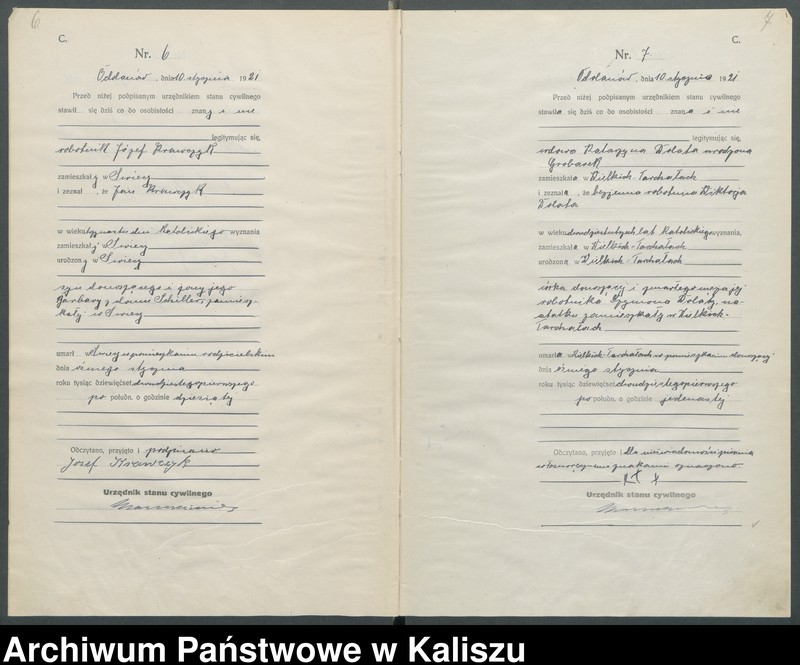 6
C.
Nr. 6
Odolanów, dnia 10 stycznia 1921
Przed niżej podpisanym urzędnikiem stanu cywilnego
stawił się dziś co do osobistości znany i nie
legitymując się,
robotnik Józef Krawczyk
zamieszkały w Świecy
i zeznał, że Jan Krawczyk
w wieku dni Katolickiego wyznania
zamieszkały w Świecy
urodzony w Świecy
syn donoszącego i żony jego
Barbary z domu Schiller, zamiesz-
kały w Świecy
umarł w Świecy w pomieszkaniu rodzicielskim
dnia ósmego stycznia
roku tysiąc dziewięćset dwudziestegopierwszego
po połudn. o godzinie dziesiąty
Odczytano, przyjęto i podpisano
Jozef Krawczyk
Urzędnik stanu cywilnego
7
C.
Nr. 7
Odolanów, dnia 10 stycznia 1921
Przed niżej podpisanym urzędnikiem stanu cywilnego
stawiła się dziś co do osobistości znana i nie
legitymując się,
wdowa Katarzyna Dolata urodzona
Grobasek
zamieszkała w Wielkich-Tarchałach
i zeznała, że bezżenna robotnica Wiktorja
Dolata
w wieku lat Katolickiego wyznania,
zamieszkała w Wielkich-Tarchałach
urodzona w Wielkich-Tarchałach
córka donoszący i zmarłego męża jej
robotnika, Szymona Dolaty, na-
statku zamieszkały w Wielkich-
Tarchałach
umarła w Wielkich-Tarchałach w pomieszkaniu donoszącej
dnia ósmego stycznia
roku tysiąc dziewięćset dwudziestegopierwszego
po połudn. o godzinie jedenasty
Odczytano, przyjęto i dla niewiadomości pisania
własnoręcznie znakami oznaczono.
Urzędnik stanu cywilnego
Archiwum Państwowe w Kaliszu